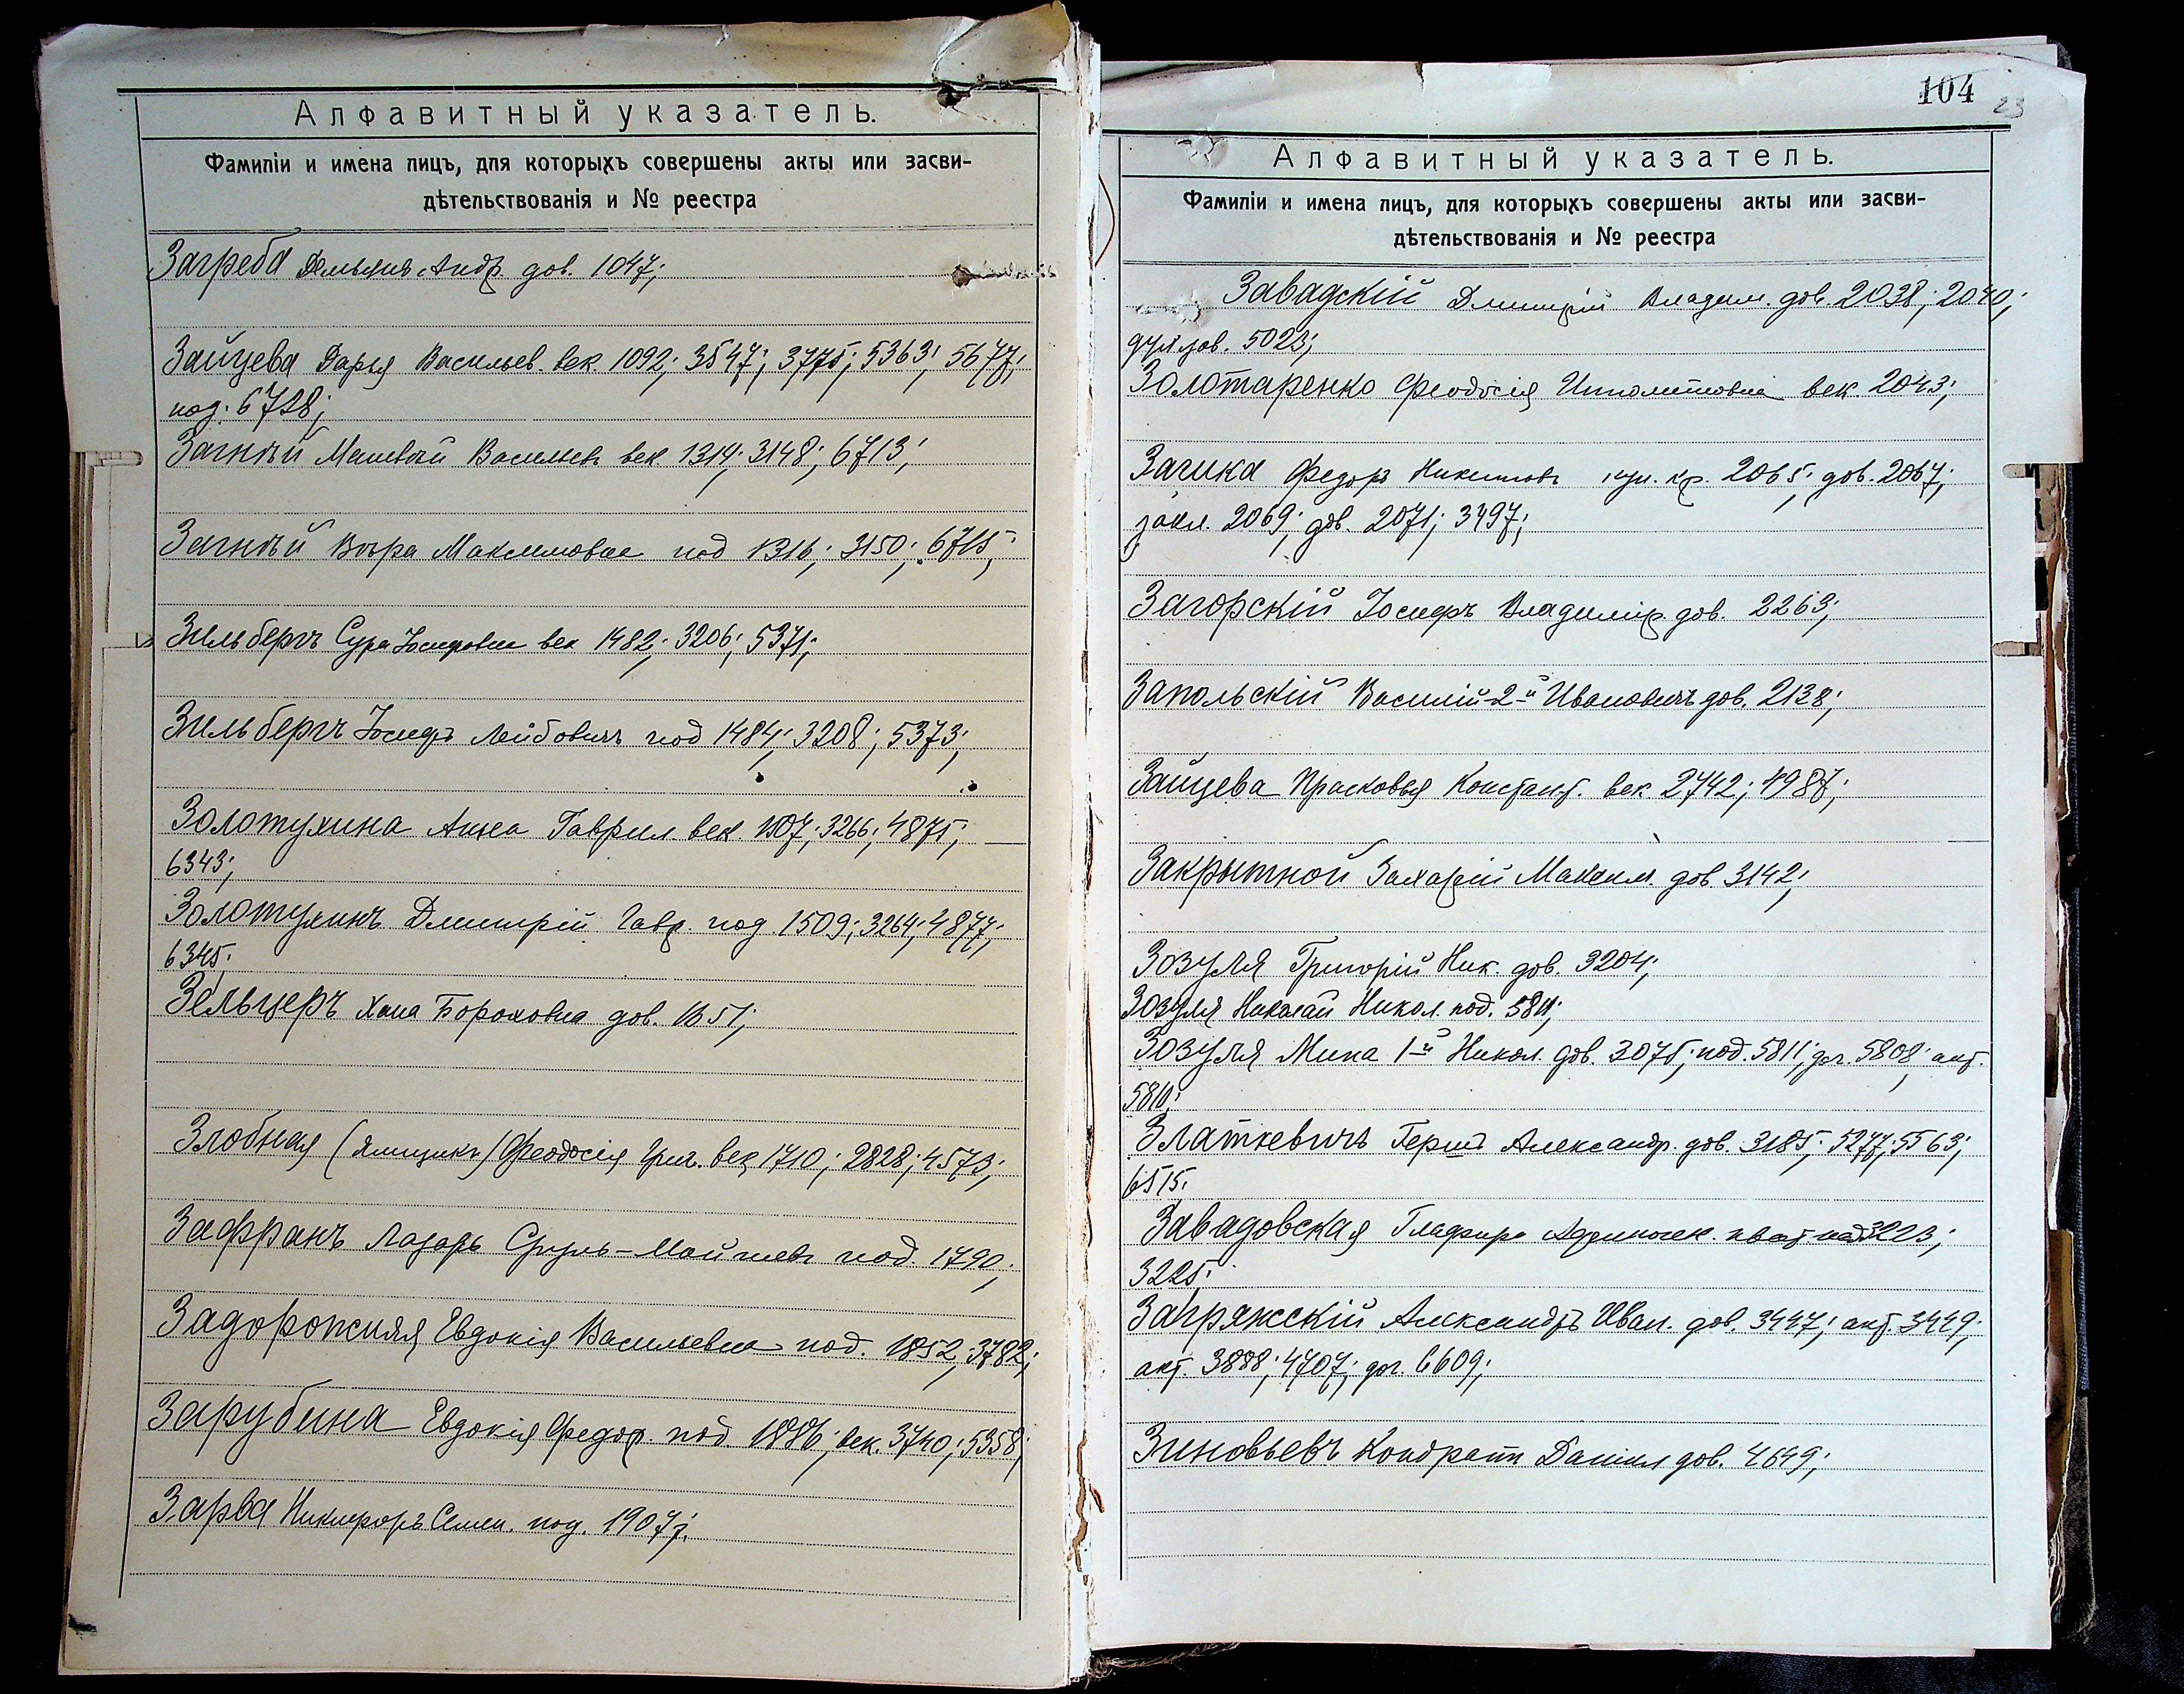 Алфавитный указатель.
Фамиліи и имена лицъ, для которыхъ совершены акты или засви-
дѣтельствованія и № реестра
Загреба Демьянъ Андр. дов. 1047;
Зайцева Дарья Васильев. век. 1092; 3547; 3775; 5363; 5677;
под. 6728;
Загній Матвѣй Васильевъ век. 1314; 3148; 6713;
Загній Вѣра Максимовна под 1316; 3150; 6715;
Зильбергъ Сура Іосифовна век 1482; 3206; 5371;
Зильбергъ Іосифъ Лейбовичъ под 1484; 3208; 5373;
Золотухина Анна Гаврил. век. 1507; 3266; 4875;
6343;
Золотухинъ Дмитрій Гавр. под. 1509; 3264; 4877;
6345;
Зельцеръ Хана Бороховна дов. 1651;
Злобная (Ямщикъ) Феодосія Григ. век 1710; 2828; 4573;
Зафранъ Лазарь Сруль-Мойшев. под. 1790;
Задорожняя Евдокія Васильевна под. 1852; 3782;
Зарубина Евдокія Федор. под 1886; век. 3740; 5358;
Зарва Никифоръ Семен. под. 1907;
104
23
Алфавитный указатель.
Фамиліи и имена лицъ, для которыхъ совершены акты или засви-
дѣтельствованія и № реестра
Завадскій Дмитрій Владим. дов. 2038; 2040;
дов. 5023;
Золотаренко Феодосія Ипполитовна век. 2043;
Загика Федоръ Никитовъ куп. кр. 2065; дов. 2067;
закл. 2069; дов. 2071; 3497;
Загорскій Іосифъ Владимір. дов. 2263;
Запольскій Василій 2-й Ивановичъ дов. 2138;
Зайцева Прасковья Констант. век. 2742; 4987;
Закрытной Захарій Максим. дов. 3142;
Зозуля Григорій Ник. дов. 3204;
Зозуля Николай Никол. под. 5811;
Зозуля Мина 1-й Никол. дов. 3075; под. 5811; дог. 5808; акт.
5810;
Златкевичъ Гершъ Александр. дов. 3185; 5277; 5563;
6515.
Завадовская Глафира 3223;
3225;
Загряжскій Александръ Иван. дов. 3447; акт. 3449;
акт. 3888; 4707; дог. 6609;
Зиновьевъ Кондратъ Даніил дов. 4649;